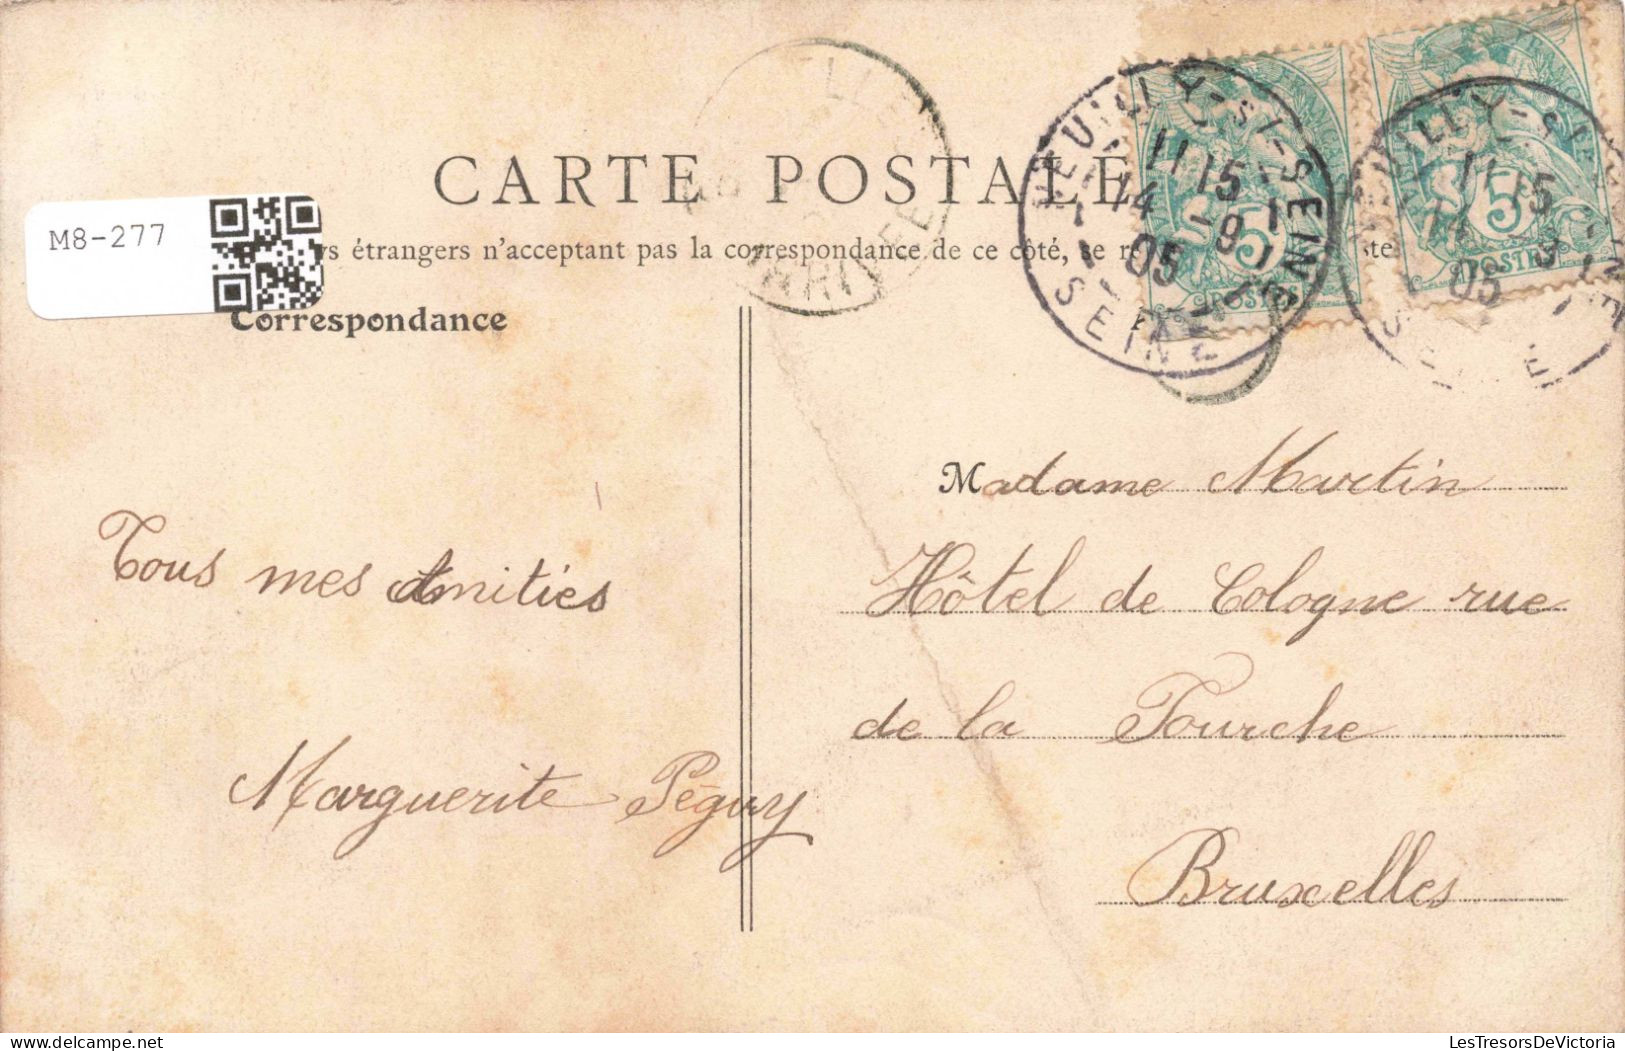 CARTE POSTALE
M8-277
étrangers n'acceptant pas la correspondance de ce côté, se
Correspondance
NEUILLY-S/-SEINE
11 15
14 -9
05
SEINE
11 15
14 -9
05
5
POSTES
5
POSTES
ARRIVÉE
Tous mes Amitiés
Marguerite Péguy
Madame Martin
Hôtel de Cologne rue
de la Fourche
Bruxelles
M8-277
LesTresorsDeVictoria